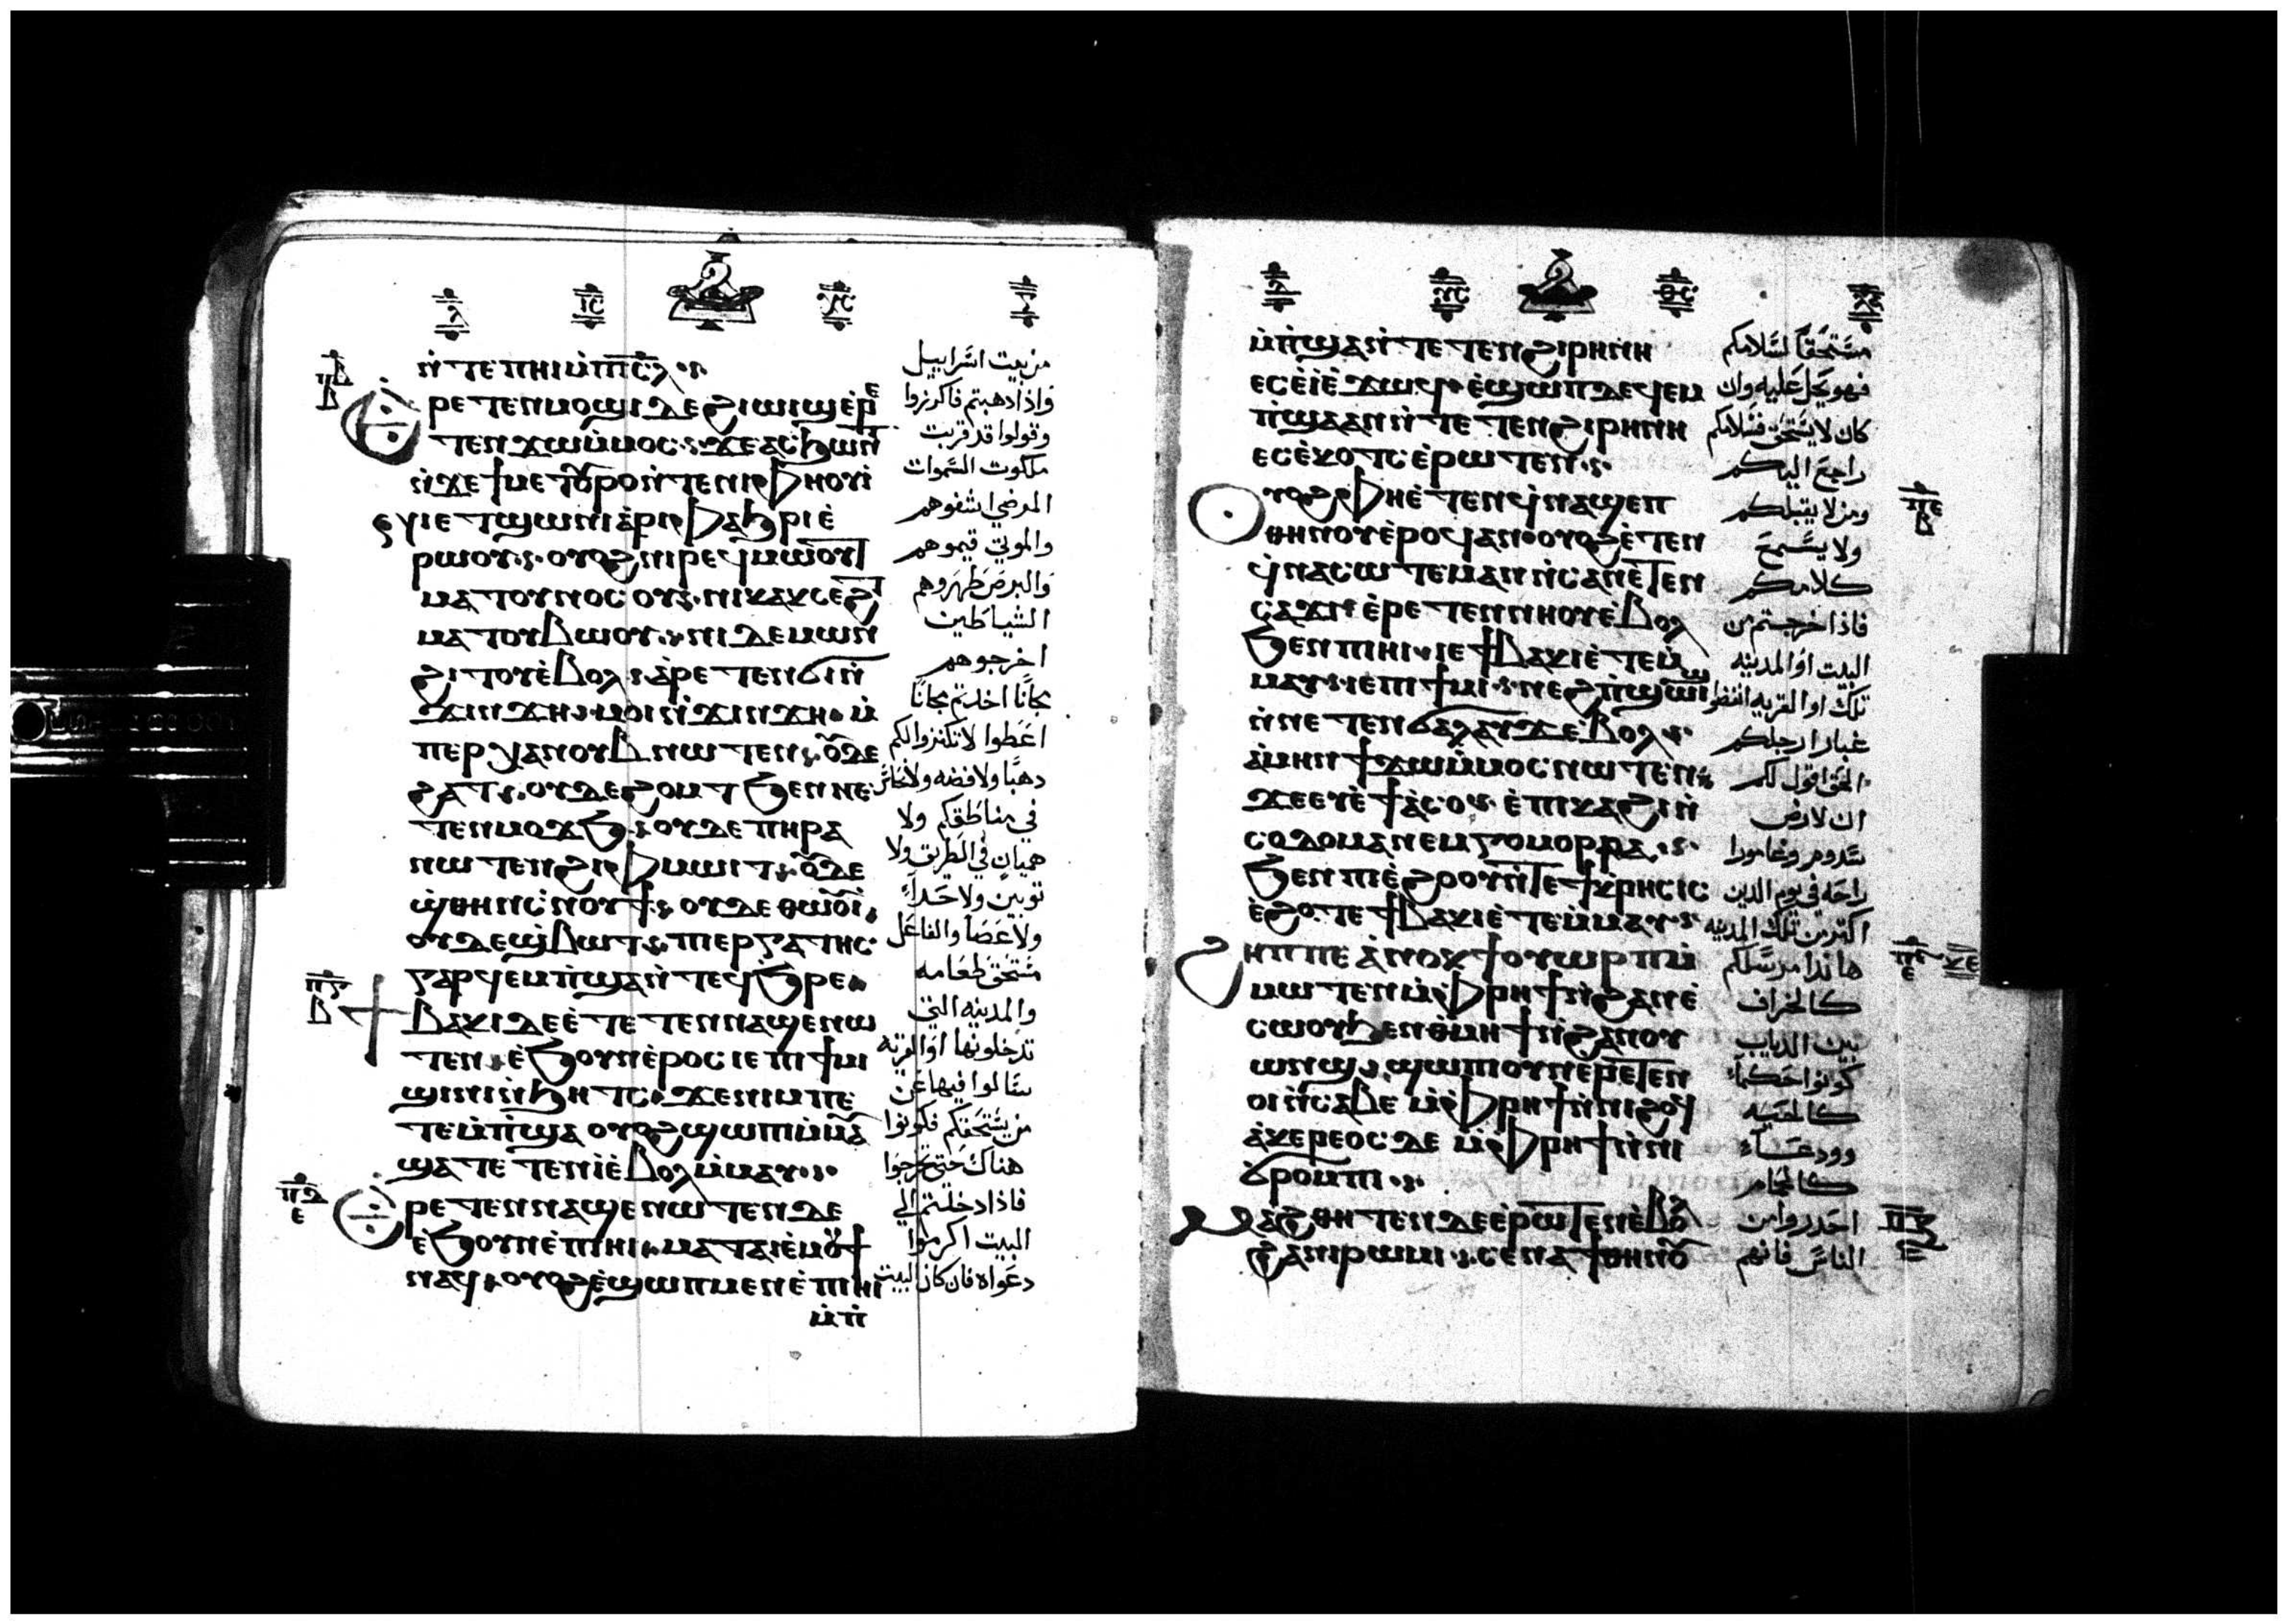 ⲗ ⲓⲥ ⲭⲥ
ⲛ̀ⲧⲉ ⲡⲏⲓ ⲙ̀ⲡⲓⲥ̅ⲗ
ⲣⲉⲧⲉⲛⲙⲟϣⲓ ⲇⲉ ϩⲓⲱⲓϣ ⲉ̀ⲣⲉ
ⲧⲉⲛϫⲱ ⲙ̀ⲙⲟⲥ ϫⲉ ⲁⲥϧⲱⲛⲧ
ⲛ̀ϫⲉ ϯⲙⲉⲧⲟⲩⲣⲟ ⲛ̀ⲧⲉ ⲛⲓⲫⲏⲟⲩⲓ
ⲉⲧϣⲱⲛⲓ ⲁ̀ⲣⲓⲫⲁϧⲣⲓ ⲉ̀
ⲣⲱⲟⲩ ⲟⲩⲟϩ ⲛⲓⲣⲉϥⲙⲱⲟⲩⲧ
ⲙⲁⲧⲟⲩⲛⲟⲥⲟⲩ ⲛⲓⲕⲁⲕⲥⲉϩⲧ
ⲙⲁⲧⲟⲩⲃⲱⲟⲩ ⲛⲓⲇⲉⲙⲱⲛ
ϩⲓⲧⲟⲩ ⲉ̀ⲃⲟⲗ ⲁ̀ⲣⲉⲧⲉⲛϭⲓ ⲛ̀
ϫⲓⲛϫⲏ ⲙⲟⲓ ⲛ̀ϫⲓⲛϫⲏ ⲙ̀
ⲡⲉⲣϫⲁ ⲛⲟⲩⲃ ⲛⲱⲧⲉⲛ ⲟⲩⲇⲉ
ϩⲁⲧ ⲟⲩⲇⲉ ϩⲟⲙⲧ ϧⲉⲛ ⲛⲉ
ⲧⲉⲛⲙⲟϫϧ ⲟⲩⲇⲉ ⲡⲏⲣⲁ
ⲛⲱⲧⲉⲛ ϩⲓ ⲫⲙⲱⲓⲧ ⲟⲩⲇⲉ
ϣ̀ⲑⲏⲛ ⲥ̀ⲛⲟⲩϯ ⲟⲩⲇⲉ ⲑⲱⲟⲩⲓ̀
ⲟⲩⲇⲉ ϣ̀ⲃⲱⲧ ⲡⲓⲉⲣⲅⲁⲧⲏⲥ
ⲅⲁⲣ ϥⲉⲙⲡ̀ϣⲁ ⲛ̀ⲧⲉϥϧⲣⲉ
ⲃⲁⲕⲓ ⲇⲉ ⲉ̀ⲧⲉⲧⲉⲛⲛⲁϣⲉⲛⲱ
ⲧⲉⲛ ⲉ̀ϧⲟⲩⲛ ⲉ̀ⲣⲟⲥ ⲓⲉ ⲡⲓϯⲙⲓ
ϣⲓⲛⲓ ⲛ̀ϧⲏⲧⲥ ϫⲉ ⲛⲓⲙ ⲡⲉ
ⲧⲉⲙⲡ̀ϣⲁ ⲟⲩⲟϩ ϣⲱⲡⲓ ⲙ̀ⲙⲁⲩ
ϣⲁⲧⲉⲧⲉⲛⲓ̀ ⲉ̀ⲃⲟⲗ ⲙ̀ⲙⲁⲩ
ⲣⲉⲧⲉⲛⲛⲁϣⲉⲛⲱⲧⲉⲛ ⲇⲉ
ⲉ̀ϧⲟⲩⲛ ⲉ̀ⲡⲓⲏⲓ ⲙⲁⲧⲁⲓⲉ̀ ⲙ̀ⲙⲟϥ
ⲛⲁϥ ⲟⲩⲟϩ ⲉ̀ϣⲱⲡ ⲙⲉⲛ ⲉ̀ⲡⲓⲏⲓ
ⲙ̀ⲡ̀
من بيت اسراييل
واذا ذهبتم فاكرزوا
وقولوا قد قربت
ملكوت السموات
المرضي اشفوهم
والموتي قيموهم
والبرص طهروهم
الشياطين
اخرجوهم
مجانًا اخدتم مجانًا
اعطوا لا تكنزوا لكم
دهبًا ولا فضه ولا نحاس
في مناطقكم ولا
هميان في الطريق ولا
توبين ولا حداء
ولا عصا والفاعل
مستحق طعامه
والمدينه التي
تدخلونها او القريه
سالوا فيها عن
من يستحقكم فكونوا
هناك حتي تخرجوا
فاذا دخلتم الي
البيت اكرموا
دعواه فان كان البيت
ⲡⲃ
ⲃ
ⲡⲅ
ⲃ
ⲡⲇ
ⲉ
ⲗ ⲩⲥ ⲑⲥ
ⲙ̀ⲡ̀ϣⲁ ⲛ̀ⲧⲉⲧⲉⲛϩⲓⲣⲏⲛⲏ
ⲉⲥⲉ̀ⲓ̀ ⲉ̀ϫⲱϥ ⲉ̀ϣⲱⲡ ⲇⲉ ϥⲉⲙ
ⲡ̀ϣⲁ ⲁⲛ ⲛ̀ⲧⲉⲧⲉⲛϩⲓⲣⲏⲛⲏ
ⲉⲥⲉ̀ⲕⲟⲧⲥ ⲉ̀ⲣⲱⲧⲉⲛ
ⲟⲩⲟϩ ⲫⲏ ⲉ̀ⲧⲉⲛϥ̀ⲛⲁϣⲉⲡ
ⲑⲏⲛⲟⲩ ⲉ̀ⲣⲟϥ ⲁⲛ ⲟⲩⲟϩ ⲉ̀ⲧⲉⲛ
ϥ̀ⲛⲁⲥⲱⲧⲉⲙ ⲁⲛ ⲛ̀ⲥⲁ ⲛⲉⲧⲉⲛ
ⲥⲁϫⲓ ⲉ̀ⲣⲉⲧⲉⲛⲛⲏⲟⲩ ⲉ̀ⲃⲟⲗ
ϧⲉⲛ ⲡⲓⲏⲓ ⲓⲉ ϯⲃⲁⲕⲓ ⲉ̀ⲧⲉⲙ̀
ⲙⲁⲩ ⲓⲉ ⲡⲓϯⲙⲓ ⲛⲉϩ ⲡ̀ϣⲱⲓϣ
ⲛ̀ⲛⲉⲧⲉⲛϭⲁⲗⲁⲩϫ ⲉ̀ⲃⲟⲗ
ⲁ̀ⲙⲏⲛ ϯϫⲱ ⲙ̀ⲙⲟⲥ ⲛⲱⲧⲉⲛ
ϫⲉ ⲉⲩⲉ̀ϯⲁ̀ⲥⲟ ⲉ̀ⲡⲕⲁϩⲓ ⲛ̀
ⲥⲟⲇⲟⲙⲁ ⲛⲉⲙ ⲅⲟⲙⲟⲣⲣⲁ
ϧⲉⲛ ⲡⲓⲉ̀ϩⲟⲟⲩ ⲛ̀ⲧⲉ ϯⲕⲣⲏⲥⲓⲥ
ⲉ̀ϩⲟⲧⲉ ϯⲃⲁⲕⲓ ⲉ̀ⲧⲉⲙ̀ⲙⲁⲩ
ϩⲏⲡⲡⲉ ⲁ̀ⲛⲟⲕ ϯⲟⲩⲱⲣⲡ ⲙ̀
ⲙⲱⲧⲉⲛ ⲙ̀ⲫⲣⲏϯ ⲛ̀ϩⲁⲛⲉ̀
ⲥⲱⲟⲩ ϧⲉⲛ ⲑⲙⲏϯ ⲛ̀ϩⲁⲛⲟⲩ
ⲱⲛϣ ϣⲱⲡⲓ ⲟⲩⲛ ⲉⲣⲉⲧⲉⲛ
ⲟⲓ ⲛ̀ⲥⲁⲃⲉ ⲙ̀ⲫⲣⲏϯ ⲛ̀ⲛⲓϩⲟϥ
ⲁ̀ⲕⲉⲣⲉⲟⲥ ⲇⲉ ⲙ̀ⲫⲣⲏϯ ⲛ̀ⲛⲓ
ϭⲣⲟⲙⲡⲓ
ⲙⲁϩⲑⲏⲧⲉⲛ ⲇⲉ ⲉ̀ⲣⲱⲧⲉⲛ ⲉ̀ⲃⲟⲗ
ϩⲁ ⲛⲓⲣⲱⲙⲓ ⲥⲉⲛⲁϯ ⲑⲏⲛⲟⲩ
مستحقًا لسلامكم
فهو يحل عليه وان
كان لا يستحق فسلامكم
راجع اليكم
ومن لا يقبلكم
ولا يسمع
كلامكم
فاذا خرجتم من
البيت او المدينه
تلك او القريه انفضوا
غبار ارجلكم
الحق اقول لكم
ان لارض
سدوم وغامورا
راحه في يوم الدين
اكثر من تلك المدينه
هانذا مرسلكم
كالخراف
بين الدياب
كونوا حكماء
كالحيه
وودعاء
كالحمام
احدروا من
الناس فانهم
ⲡⲉ
ⲃ
ⲡⲋ
ⲉ
ⲕⲉ
ⲡⲍ